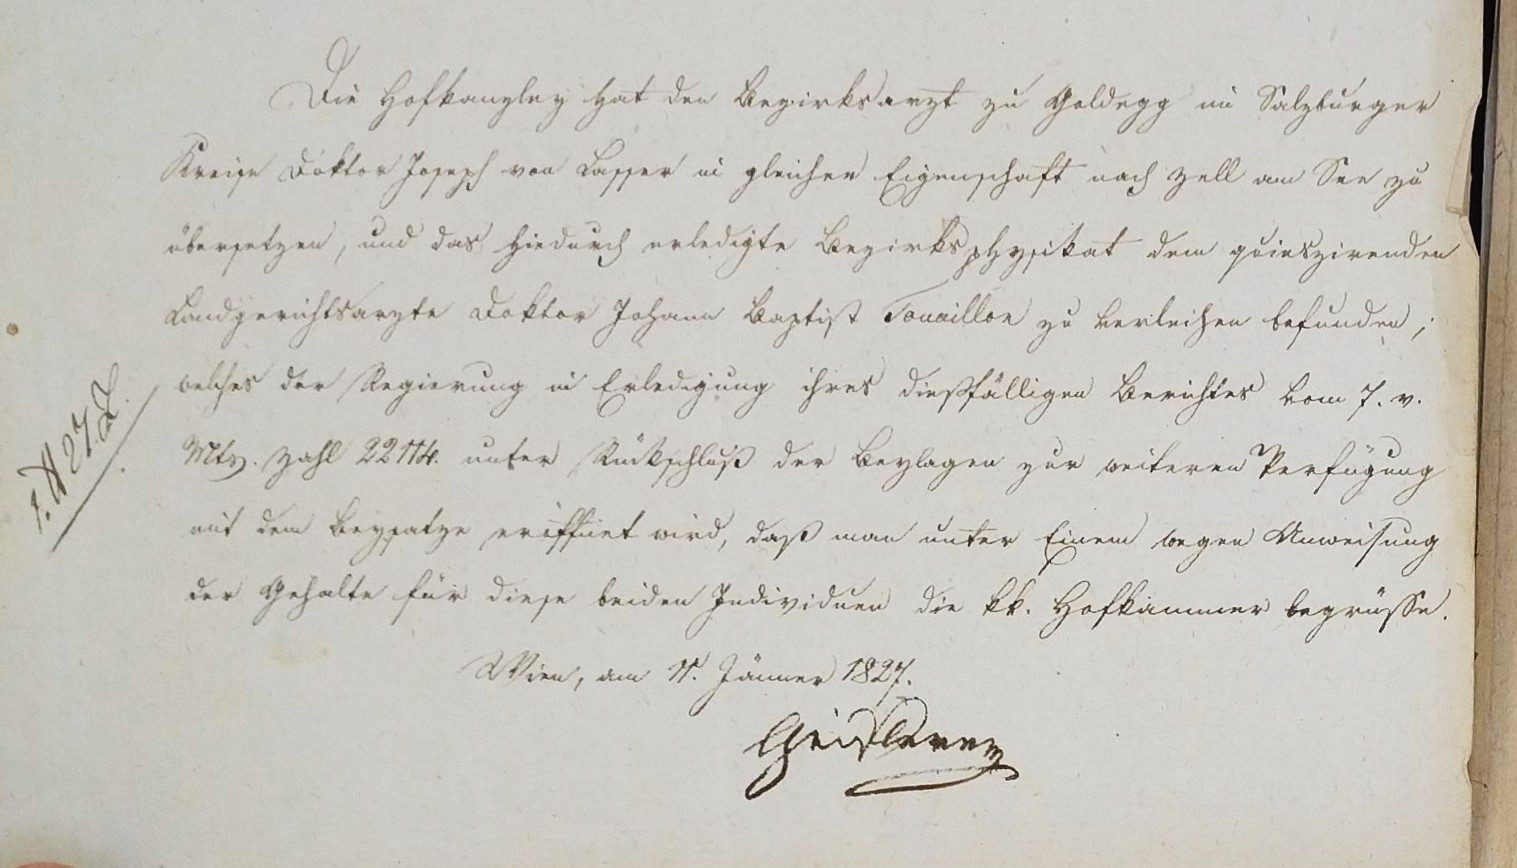 Die Hofkanzley hat den Bezirksarzt zu Goldegg im Salzburger
Kreise Doktor Joseph von Lasser in gleicher Eigenschaft nach Zell am See zu
übersetzen, und das hiedurch erledigte Bezirksphysikat dem quieszirenden
Landgerichtsarzte Doktor Johann Baptist Touaillon zu verleihen befunden;
welches der Regierung in Erledigung ihres dießfälligen Berichtes vom 7. v.
Mts. Zahl 22114. unter Rückschluß der Beylagen zur weiteren Verfügung
mit dem Beysatze eröffnet wird, daß man unter Einem wegen Anweisung
der Gehalte für diese beiden Individuen die kk. Hofkammer begrüsse.
Wien, am 11. Jänner 1827.